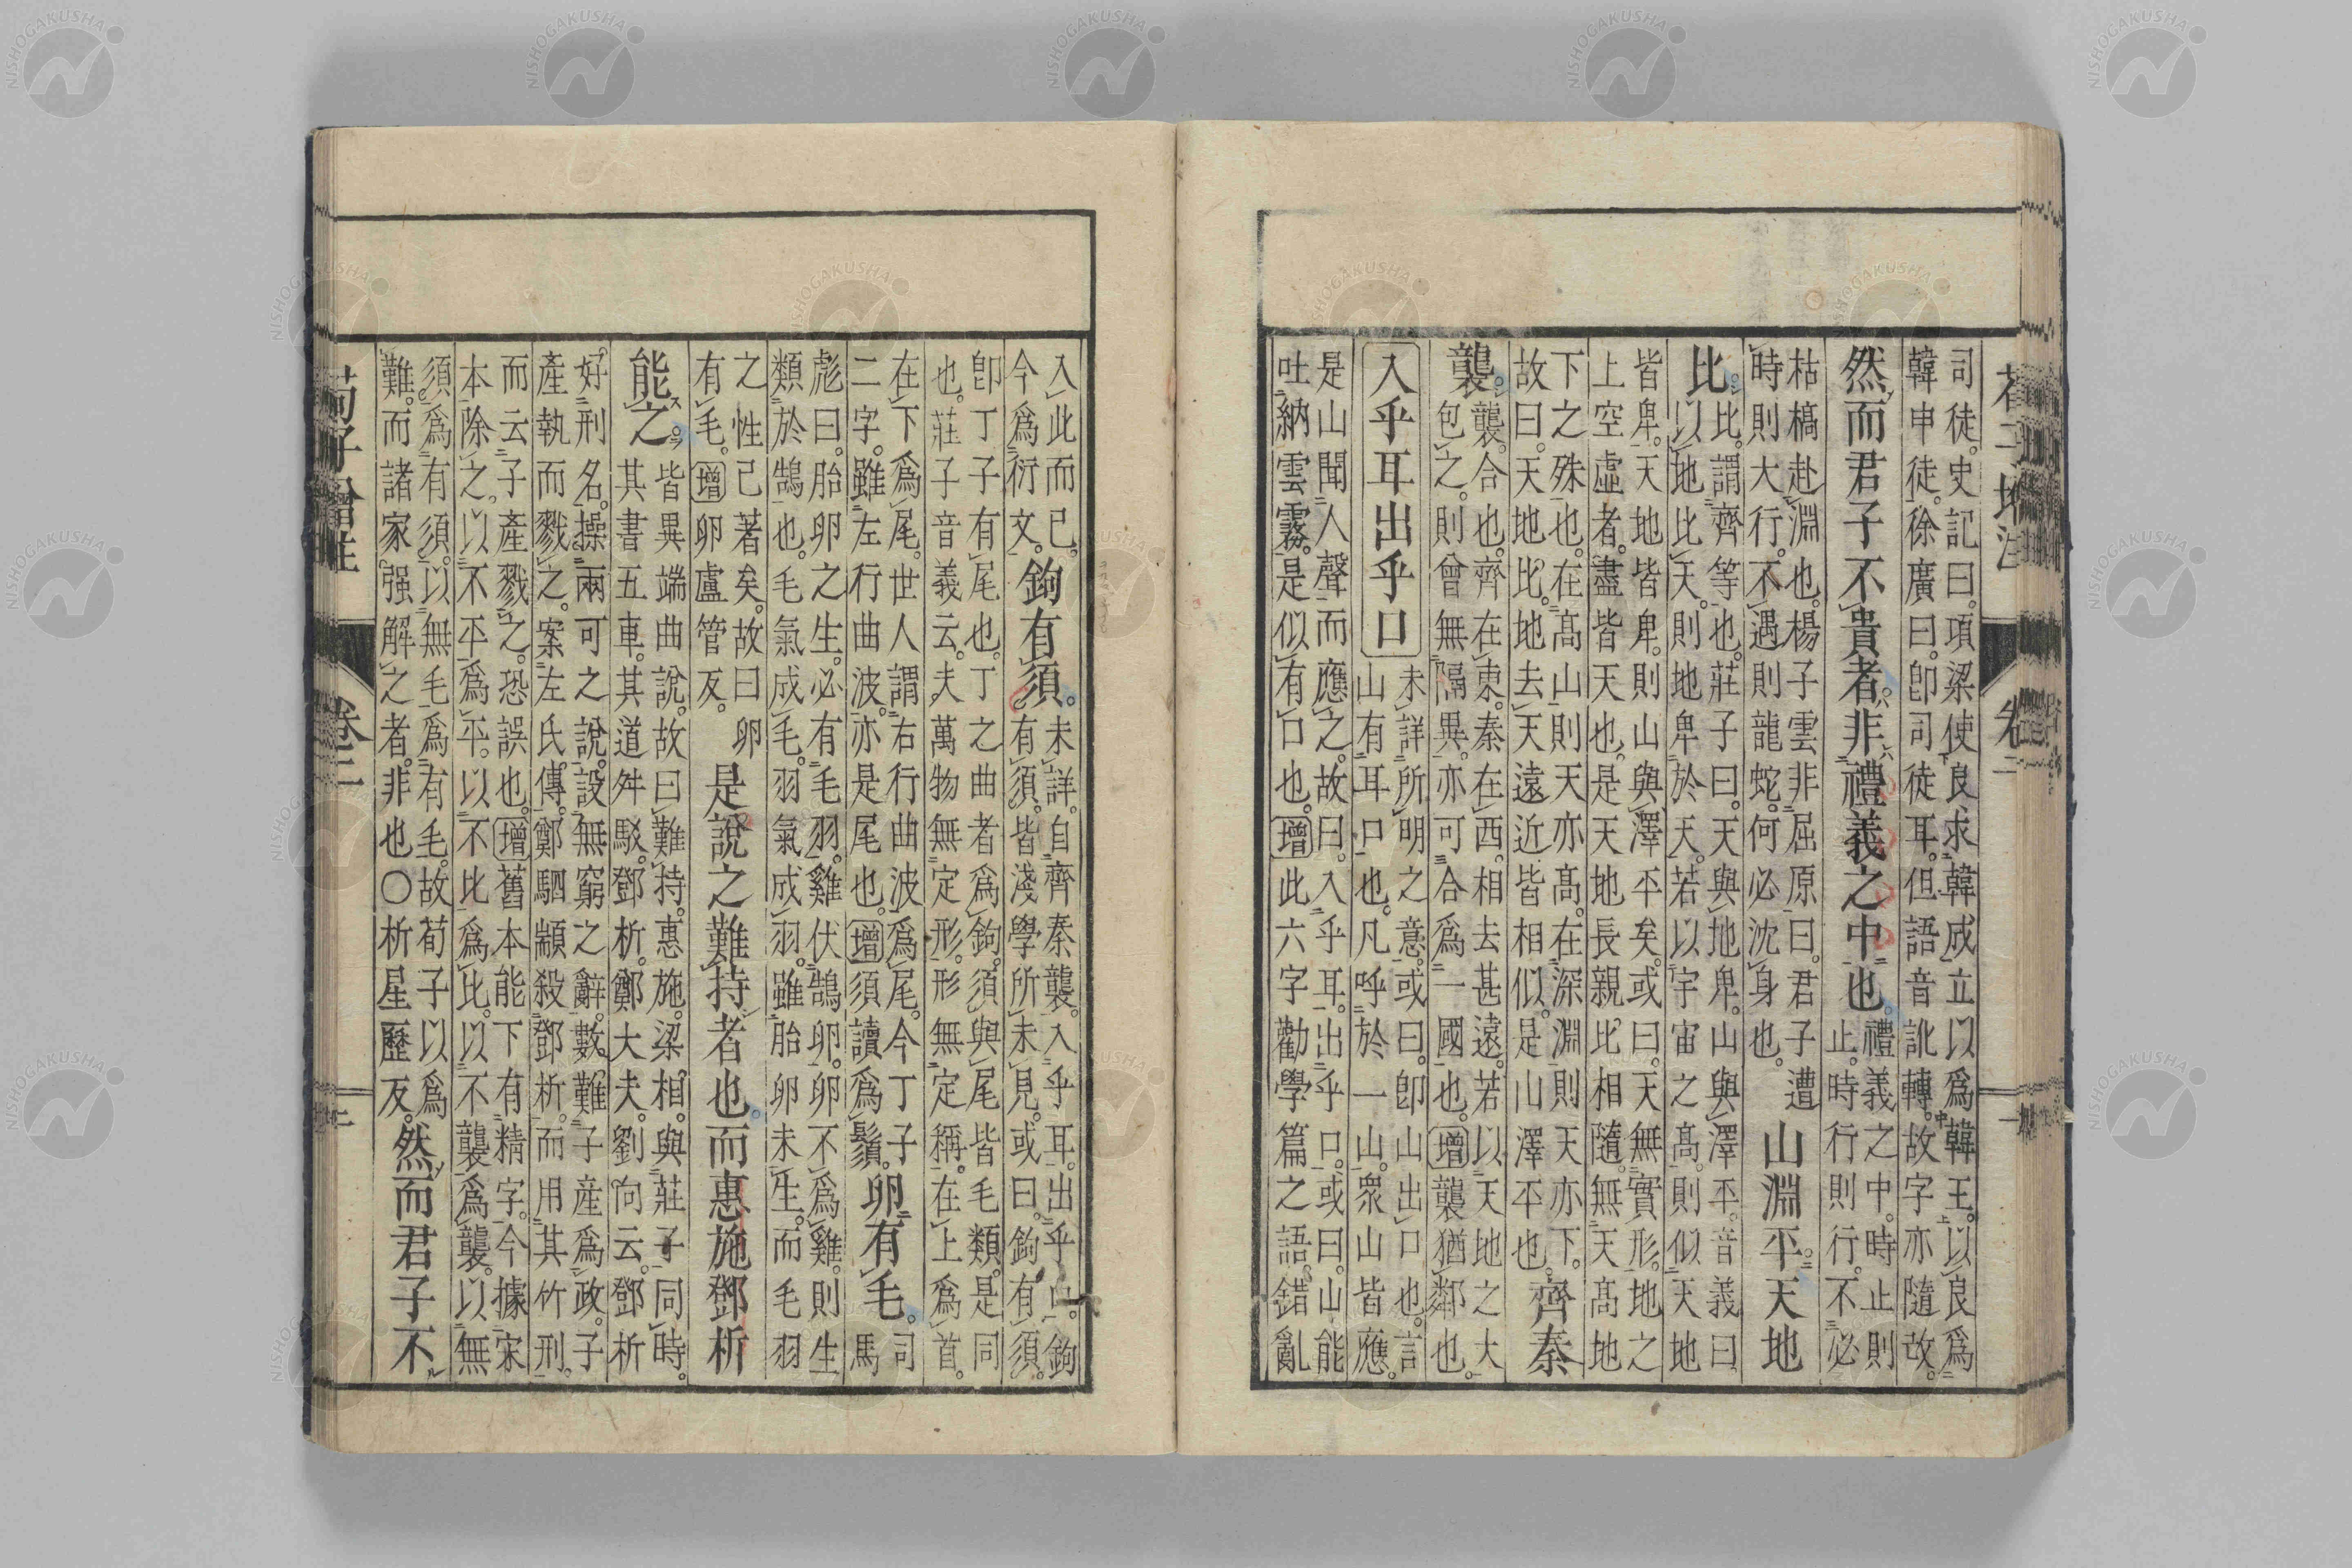 司徒。史記曰。項梁使良求韓成立以爲韓王。以良爲
韓申徒。徐廣曰。卽司徒耳。但語音訛轉。故字亦隨改。
然而君子不貴者。非禮義之中也。
禮義之中。時止則
止。時行則行。不必
枯槁赴淵也。楊子雲非屈原曰。君子遭
時則大行。不遇則龍蛇。何必沈身也。
山淵平。天地
比。
比。謂齊等也。莊子曰。天與地卑。山與澤平。音義曰
以地比天。則地卑於天。若以宇宙之髙。則似天地
皆卑。天地皆卑。則山與澤平矣。或曰。天無實形。地之
上空虛者。盡皆天也。是天地長親比相隨。無天髙地
下之殊也。在髙山則天亦髙。在深淵則天亦下。
故曰。天地比。地去天遠近皆相似。是山澤平也。
齊秦
襲。
襲。合也。齊在東。秦在西。相去甚遠。若以天地之大
包之。則曾無隔異。亦可合爲一國也。增襲猶鄰也。
入乎耳出乎口
未詳所明之意。或曰。卽山出口也。言
山有耳口也。凡呼於一山。衆山皆應。
是山聞人聲而應之。故曰。入乎耳。出乎口。或曰。山能
吐納雲霧。是似有口也。增此六字勸學篇之語。錯亂
入此而已。
今爲衍文。
鉤有須。
未詳。自齊秦襲。入乎耳。出乎口。鉤
有須。皆淺學所未見。或曰。鉤有須。
卽丁子有尾也。丁之曲者爲鉤。須與尾皆毛類。是同
也。莊子音義云。夫萬物無定形。形無定稱。在上爲首。
在下爲尾。世人謂右行曲波爲尾。今丁子
二字。雖左行曲波。亦是尾也。增須讀爲鬚。
卵有毛。
司
馬
彪曰。胎卵之生。必有毛羽。雞伏鵠卵。卵不爲雞。則生
類於鵠也。毛氣成毛。羽氣成羽。雖胎卵未生。而毛羽
之性已著矣。故曰卵
有毛。增卵盧管反。
是說之難持者也。而惠施鄧析
能之。
皆異端曲說。故曰難持。惠施。梁相。與莊子同時。
其書五車。其道舛駁。鄧析。鄭大夫。劉向云。鄧析
好刑名。操兩可之說。設無窮之辭。數難子產爲政。子
產執而戮之。案左氏傳。鄭駟顓殺鄧析。而用其竹刑。
而云子產戮之。恐誤也。增舊本能下有精字。今據宋
本除之。以不平爲平。以不比爲比。以不襲爲襲。以無
須爲有須。以無毛爲有毛。故荀子以爲
難。而諸家强解之者。非也○析星歷反。
然而君子不
荀子增注 卷二